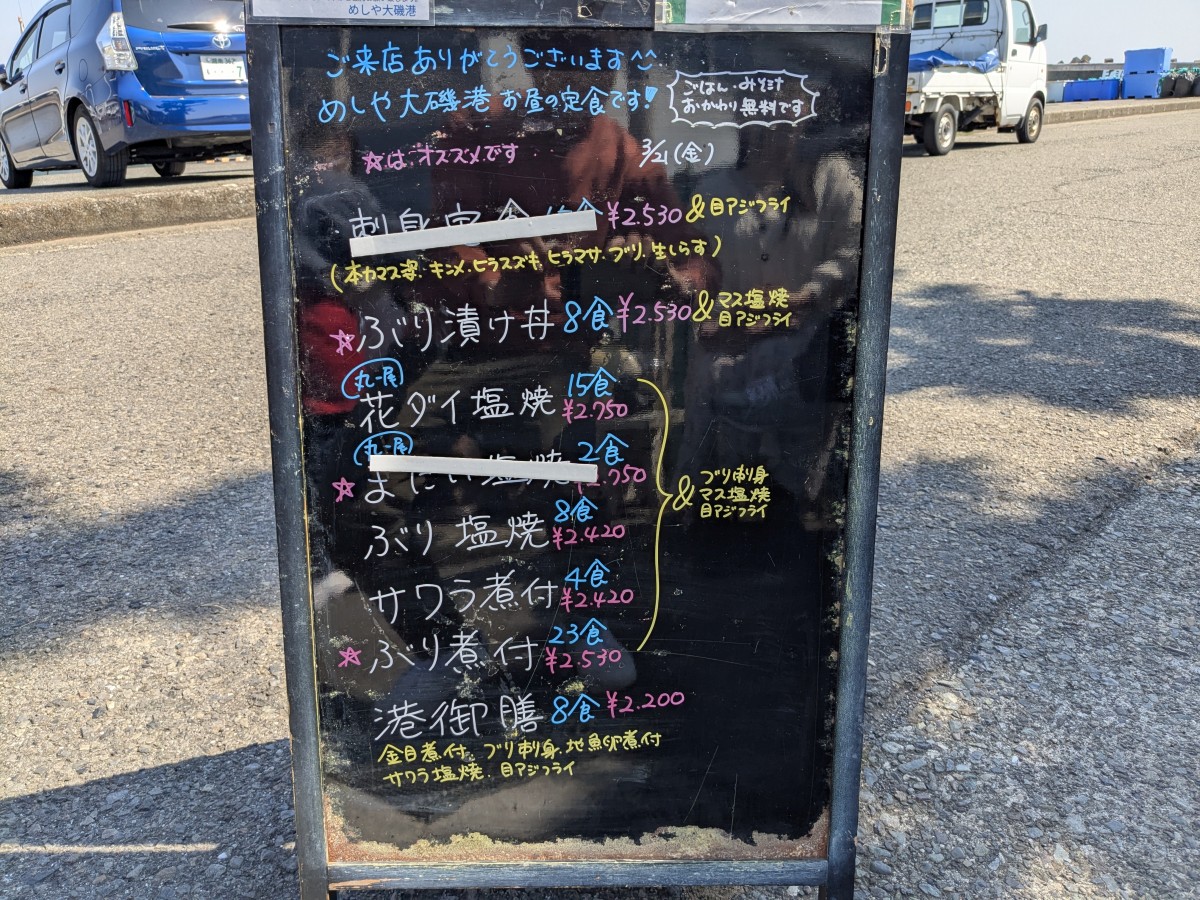 めしや大磯港
ご来店ありがとうございます
めしや大磯港 お昼の定食です!
ごはん・みそ汁
おかわり無料です
☆は、オススメです
3/21(金)
刺身定食 ¥2.530 & 目アジフライ
(本カマス・キンメ・ヒラスズキ・ヒラマサ・ブリ・生しらす)
☆ぶり漬け丼 8食 ¥2.530 & マス塩焼
目アジフライ
丸一尾
花ダイ塩焼 15食
¥2.750
丸一尾
☆まだい塩焼 2食
¥2.750
& ブリ刺身
マス塩焼
目アジフライ
ぶり塩焼 8食
¥2.420
サワラ煮付 4食
¥2.420
☆ぶり煮付 23食
¥2.530
港御膳 8食 ¥2.200
金目煮付、ブリ刺身、地魚卵煮付
サワラ塩焼、目アジフライ